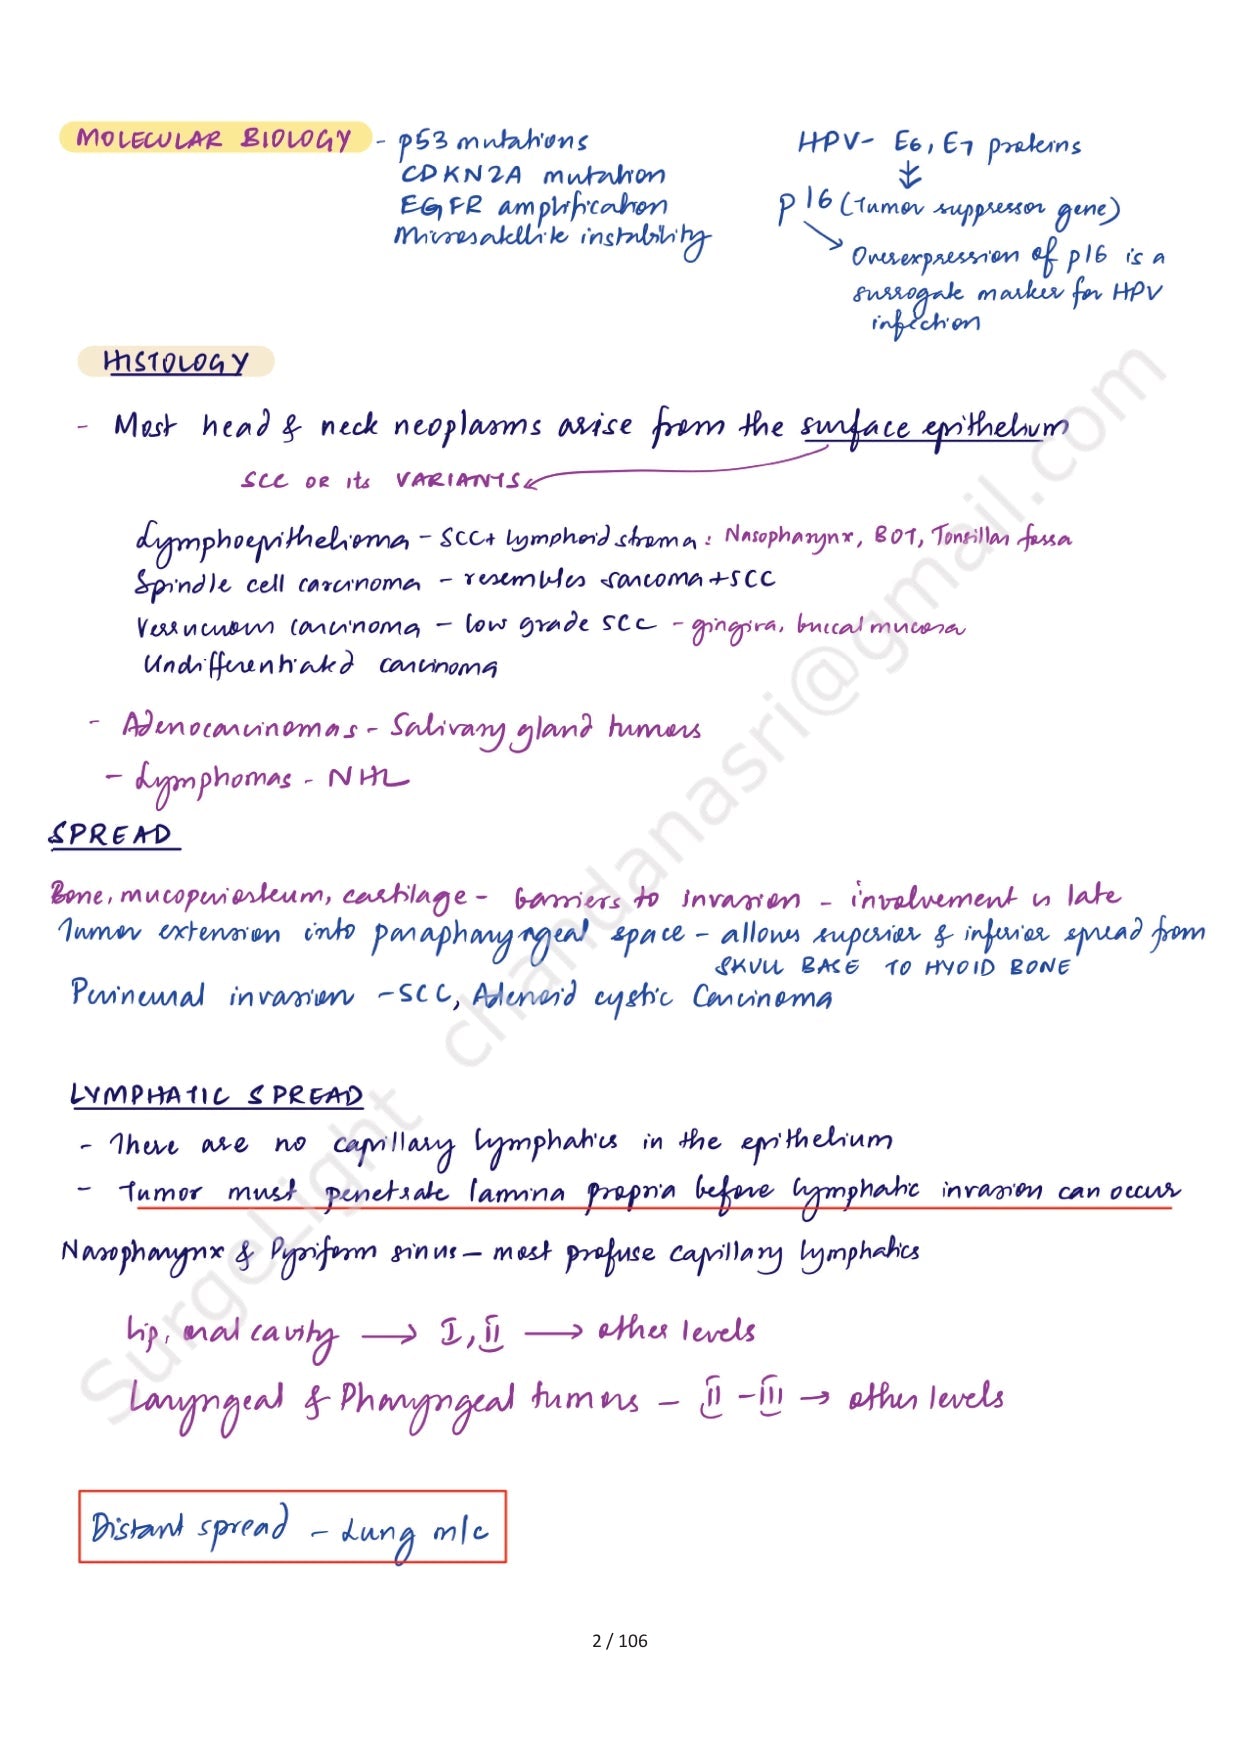 MOLECULAR BIOLOGY - p53 mutations
CDKN2A mutation
EGFR amplification
Microsatellite instability
HPV - E6, E7 proteins
p16 (Tumor suppressor gene)
Overexpression of p16 is a
surrogate marker for HPV
infection
HISTOLOGY
- Most head & neck neoplasms arise from the surface epithelium
SCC OR its VARIANTS
Lymphoepithelioma - SCC + lymphoid stroma : Nasopharynx, BOT, Tonsillar fossa
Spindle cell carcinoma - resembles sarcoma + SCC
Verrucuous carcinoma - low grade SCC - gingiva, buccal mucosa
Undifferentiated carcinoma
- Adenocarcinomas - Salivary gland tumors
- Lymphomas - NHL
SPREAD
Bone, mucoperiosteum, cartilage - barriers to invasion - involvement is late
Tumor extension into parapharyngeal space - allows superior & inferior spread from
SKULL BASE TO HYOID BONE
Perineural invasion - SCC, Adenoid cystic Carcinoma
LYMPHATIC SPREAD
- There are no capillary lymphatics in the epithelium
- Tumor must penetrate lamina propria before lymphatic invasion can occur
Nasopharynx & Pyriform sinus - most profuse capillary lymphatics
Lip, oral cavity → I, II → other levels
Laryngeal & Pharyngeal tumors - II - III → other levels
Distant spread - Lung m/c
SurgeLight chandanasri@gmail.com
2 / 106